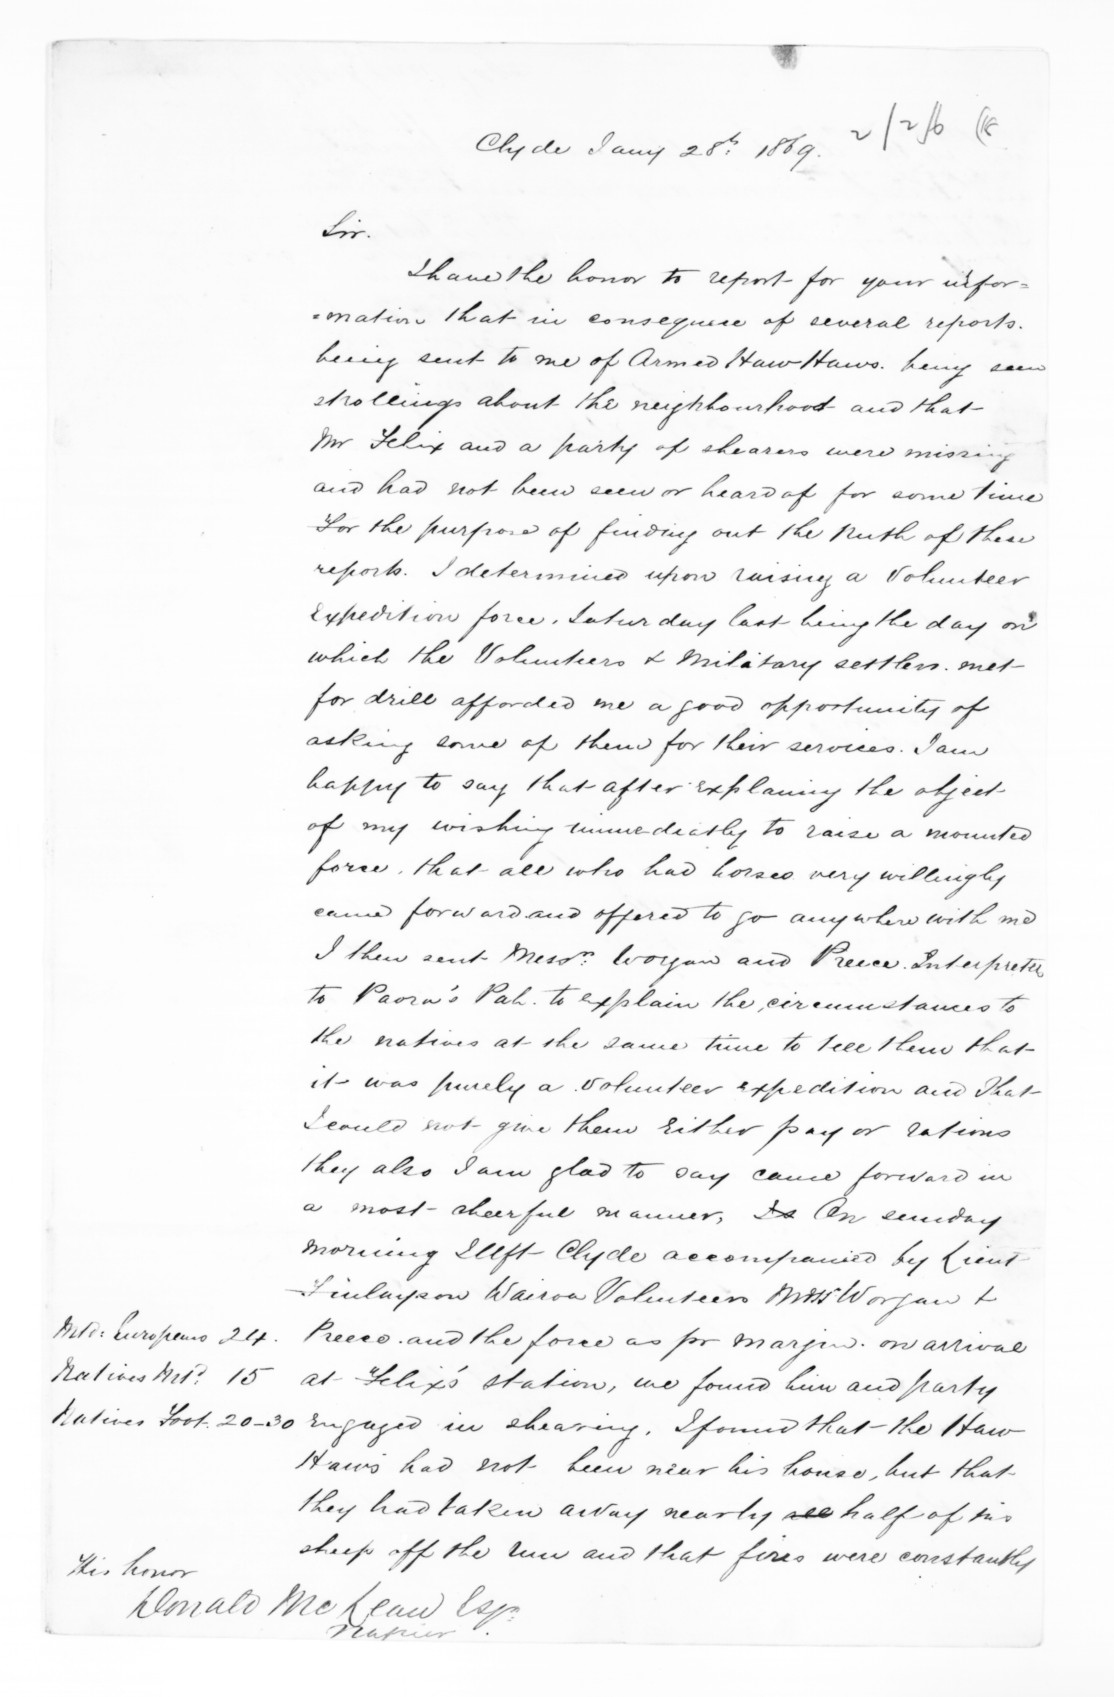 Clyde Jany 28th 1869.
Sir.
I have the honor to report for your infor=
=mation that in consequence of several reports.
being sent to me of Armed Haw Haws. being seen
strollings about the neighbourhood and that
Mr Felix and a party of shearers were missing
and had not been seen or heard of for some time
For the purpose of finding out the truth of these
reports. I determined upon raising a Volunteer
Expedition force. Saturday last being the day on
which the Volunteers & Military settlers. met
for drill afforded me a good opportunity of
asking some of them for their services. I am
happy to say that after explaining the object
of my wishing immediatly to raise a mounted
force. that all who had horses very willingly
came forward and offered to go anywhere with me
I then sent Messrs: Worgan and Preece. Interpreter
to Paora's Pah. to explain the circumstances to
the natives at the same time to tell them that
it was purely a Volunteer expedition and that
I could not give them either pay or rations
they also I am glad to say came forward in
a most cheerful manner, On sunday
morning I left Clyde accompanied by Lieut
Finlayson Wairoa Volunteers Messrs Worgan &
Mtd: Europeans 24. Preece. and the force as pr margin. on arrival
Natives Mtd: 15 at Felix's station, we found him and party
Natives Foot. 20-30 engaged in shearing. I found that the Haw
Haws had not been near his house, but that
they had taken away nearly all half of his
sheep off the run and that fires were constantly
His honor
Donald McLean Esqr.
Napier